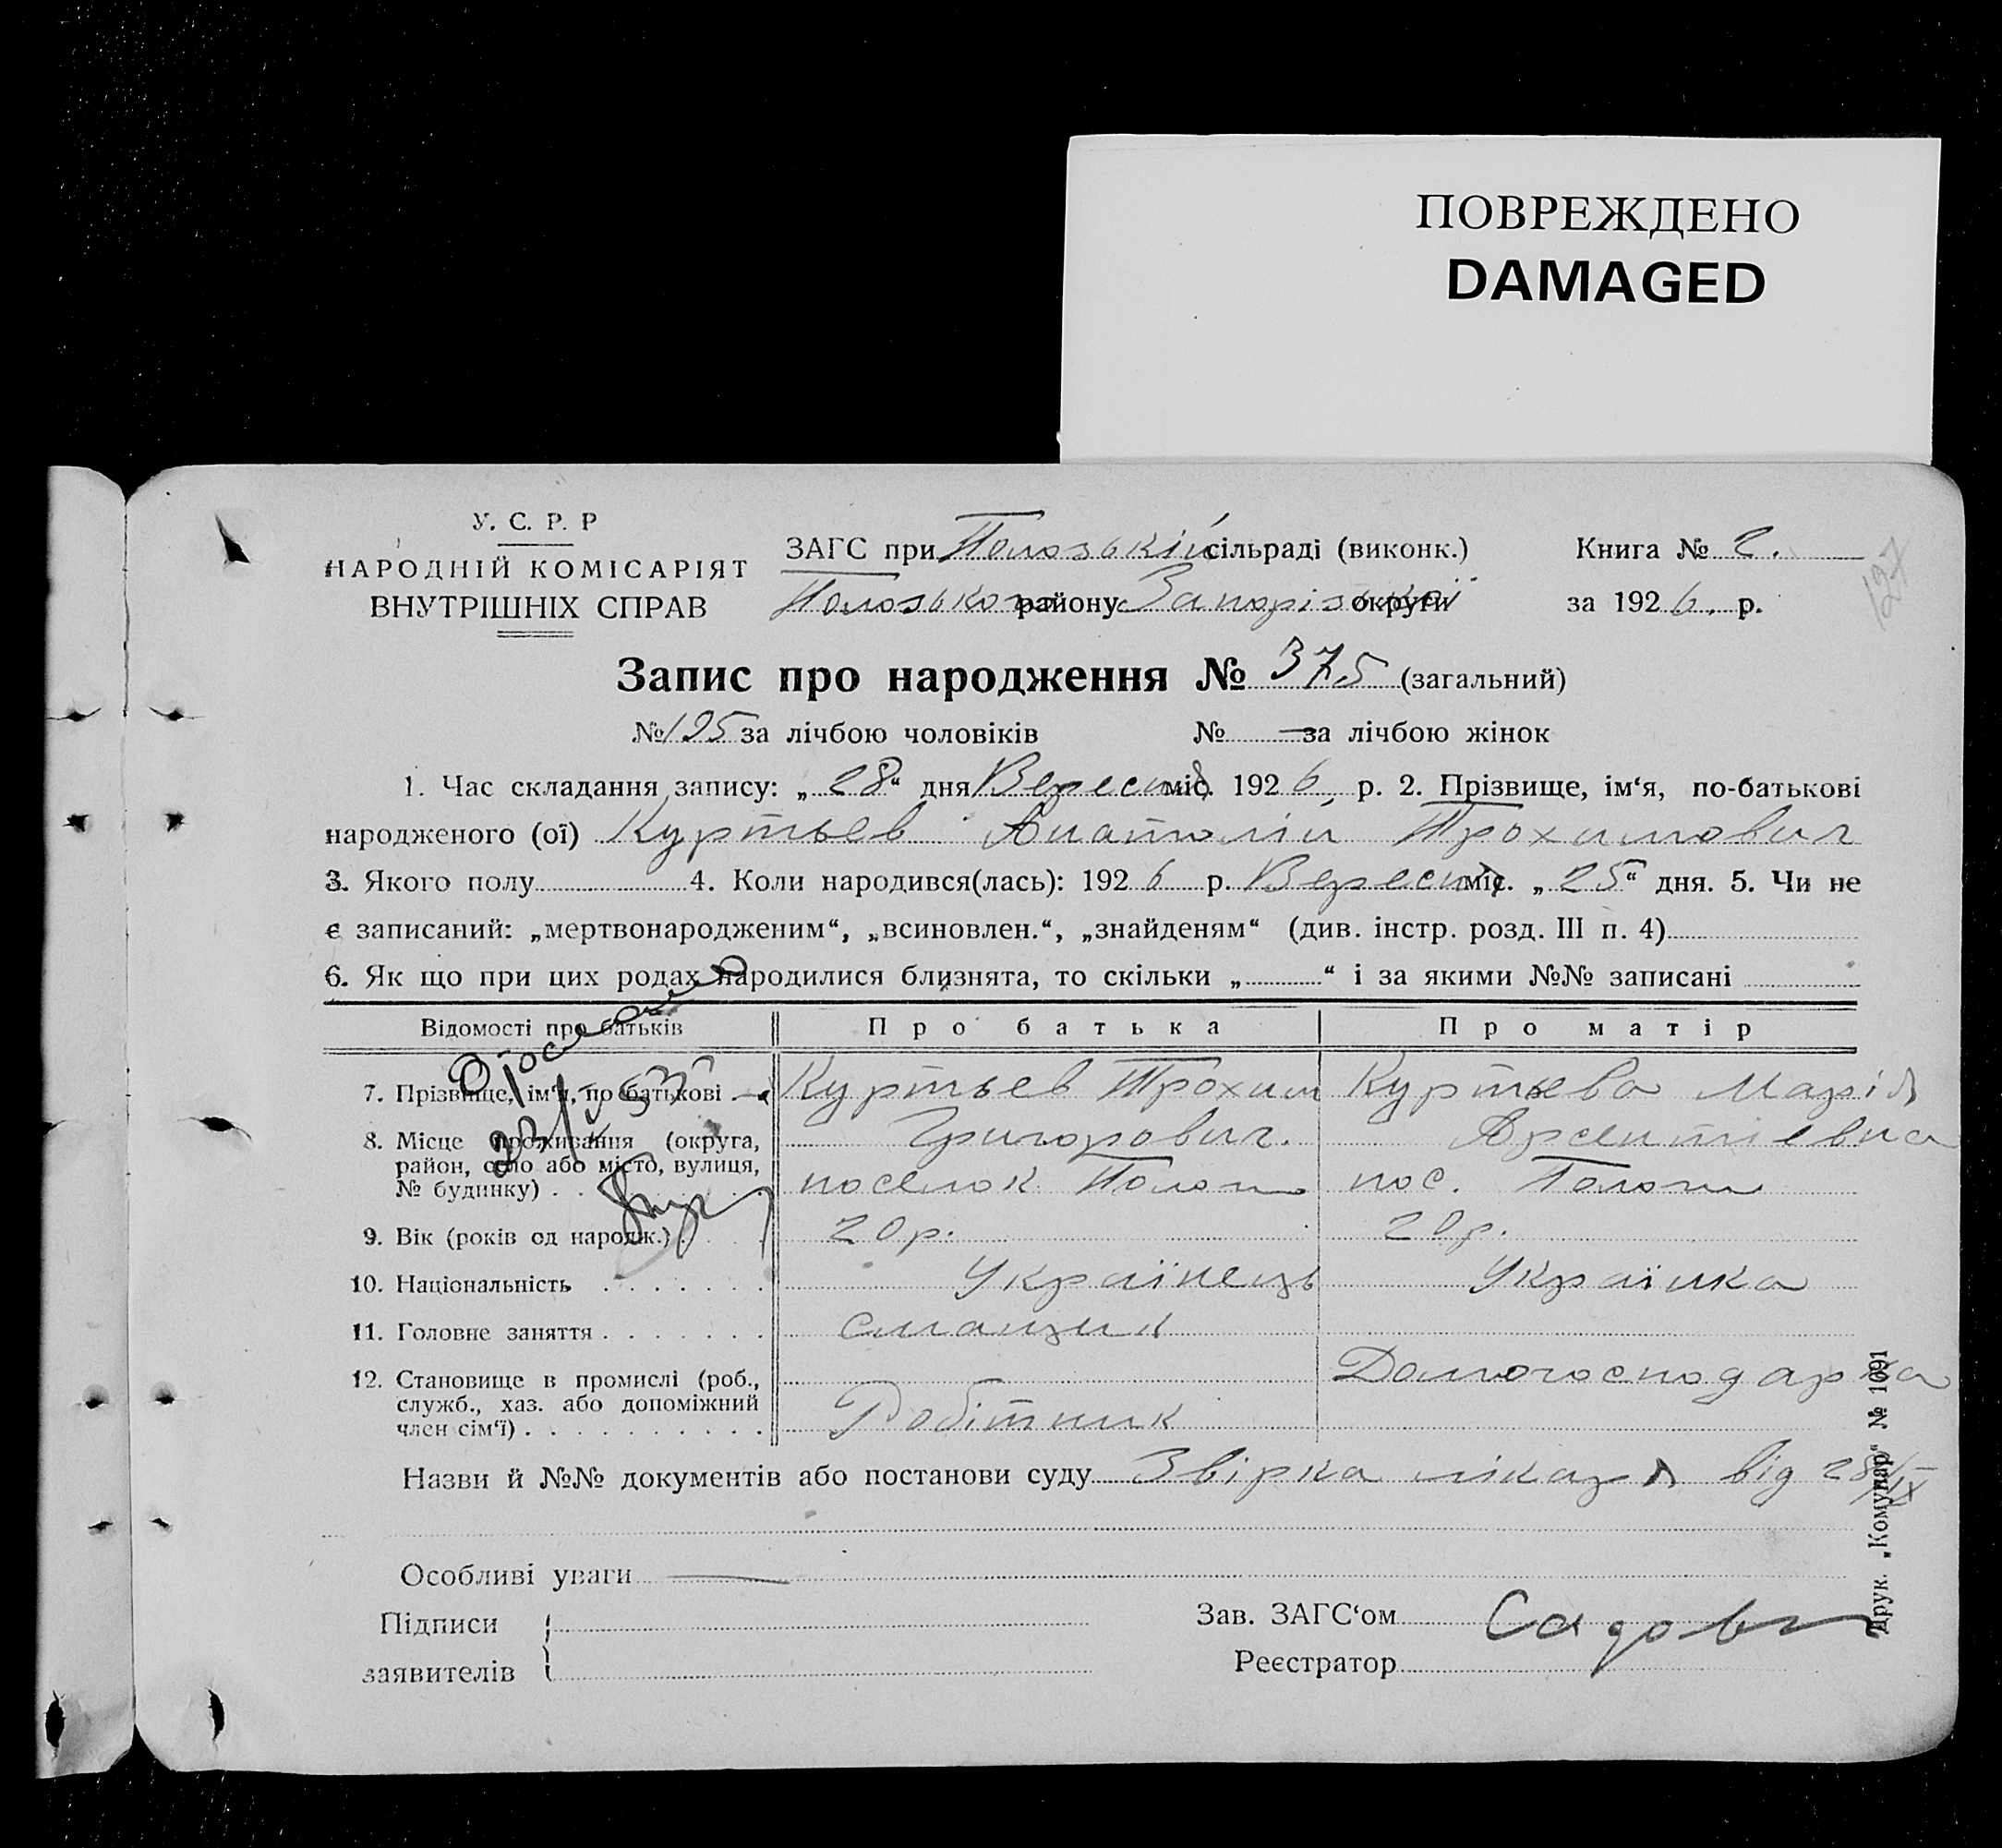 ПОВРЕЖДЕНО
DAMAGED
У. С. Р. Р
НАРОДНІЙ КОМІСАРІЯТ
ВНУТРІШНІХ СПРАВ
ЗАГС при Пологській сільраді (виконк.)
Пологського району Запорізької округи
Книга № 2.
за 1926. р.
127
Запис про народження № 375 (загальний)
№ 195 за лічбою чоловіків № — за лічбою жінок
1. Час складання запису: „28“ дня Вересня міс. 1926 р. 2. Прізвище, ім‘я, по-батькові
народженого (ої) Куртьев Анатолій Трохимович
3. Якого полу 4. Коли народився(лась): 1926 р. Вересня міс. „25“ дня. 5. Чи не
є записаний: „мертвонародженим“, „всиновлен.“, „знайденям“ (див. інстр. розд. III п. 4)
6. Як що при цих родах народилися близнята, то скільки „ “ і за якими №№ записані
Відомості про батьків Про батька Про матір
7. Прізвище, ім‘я, по батькові Куртьев Трохим Куртьева Марія
Григорович. Арсентієвна
8. Місце проживання (округа,
район, село або місто, вулиця,
№ будинку) поселок Пологи пос. Пологи
9. Вік (років од народж.) 20 р. 20 р.
10. Національність Українець Українка
11. Головне заняття смащик
12. Становище в промислі (роб.,
служб., хаз. або допоміжний
член сім‘ї) Робітник Домогосподарка
Назви й №№ документів або постанови суду Звірка лікаря від 28/IX
Особливі уваги —
Підписи
заявителів
Зав. ЗАГС‘ом
Реєстратор
Друк. „Комунар“ № 1091